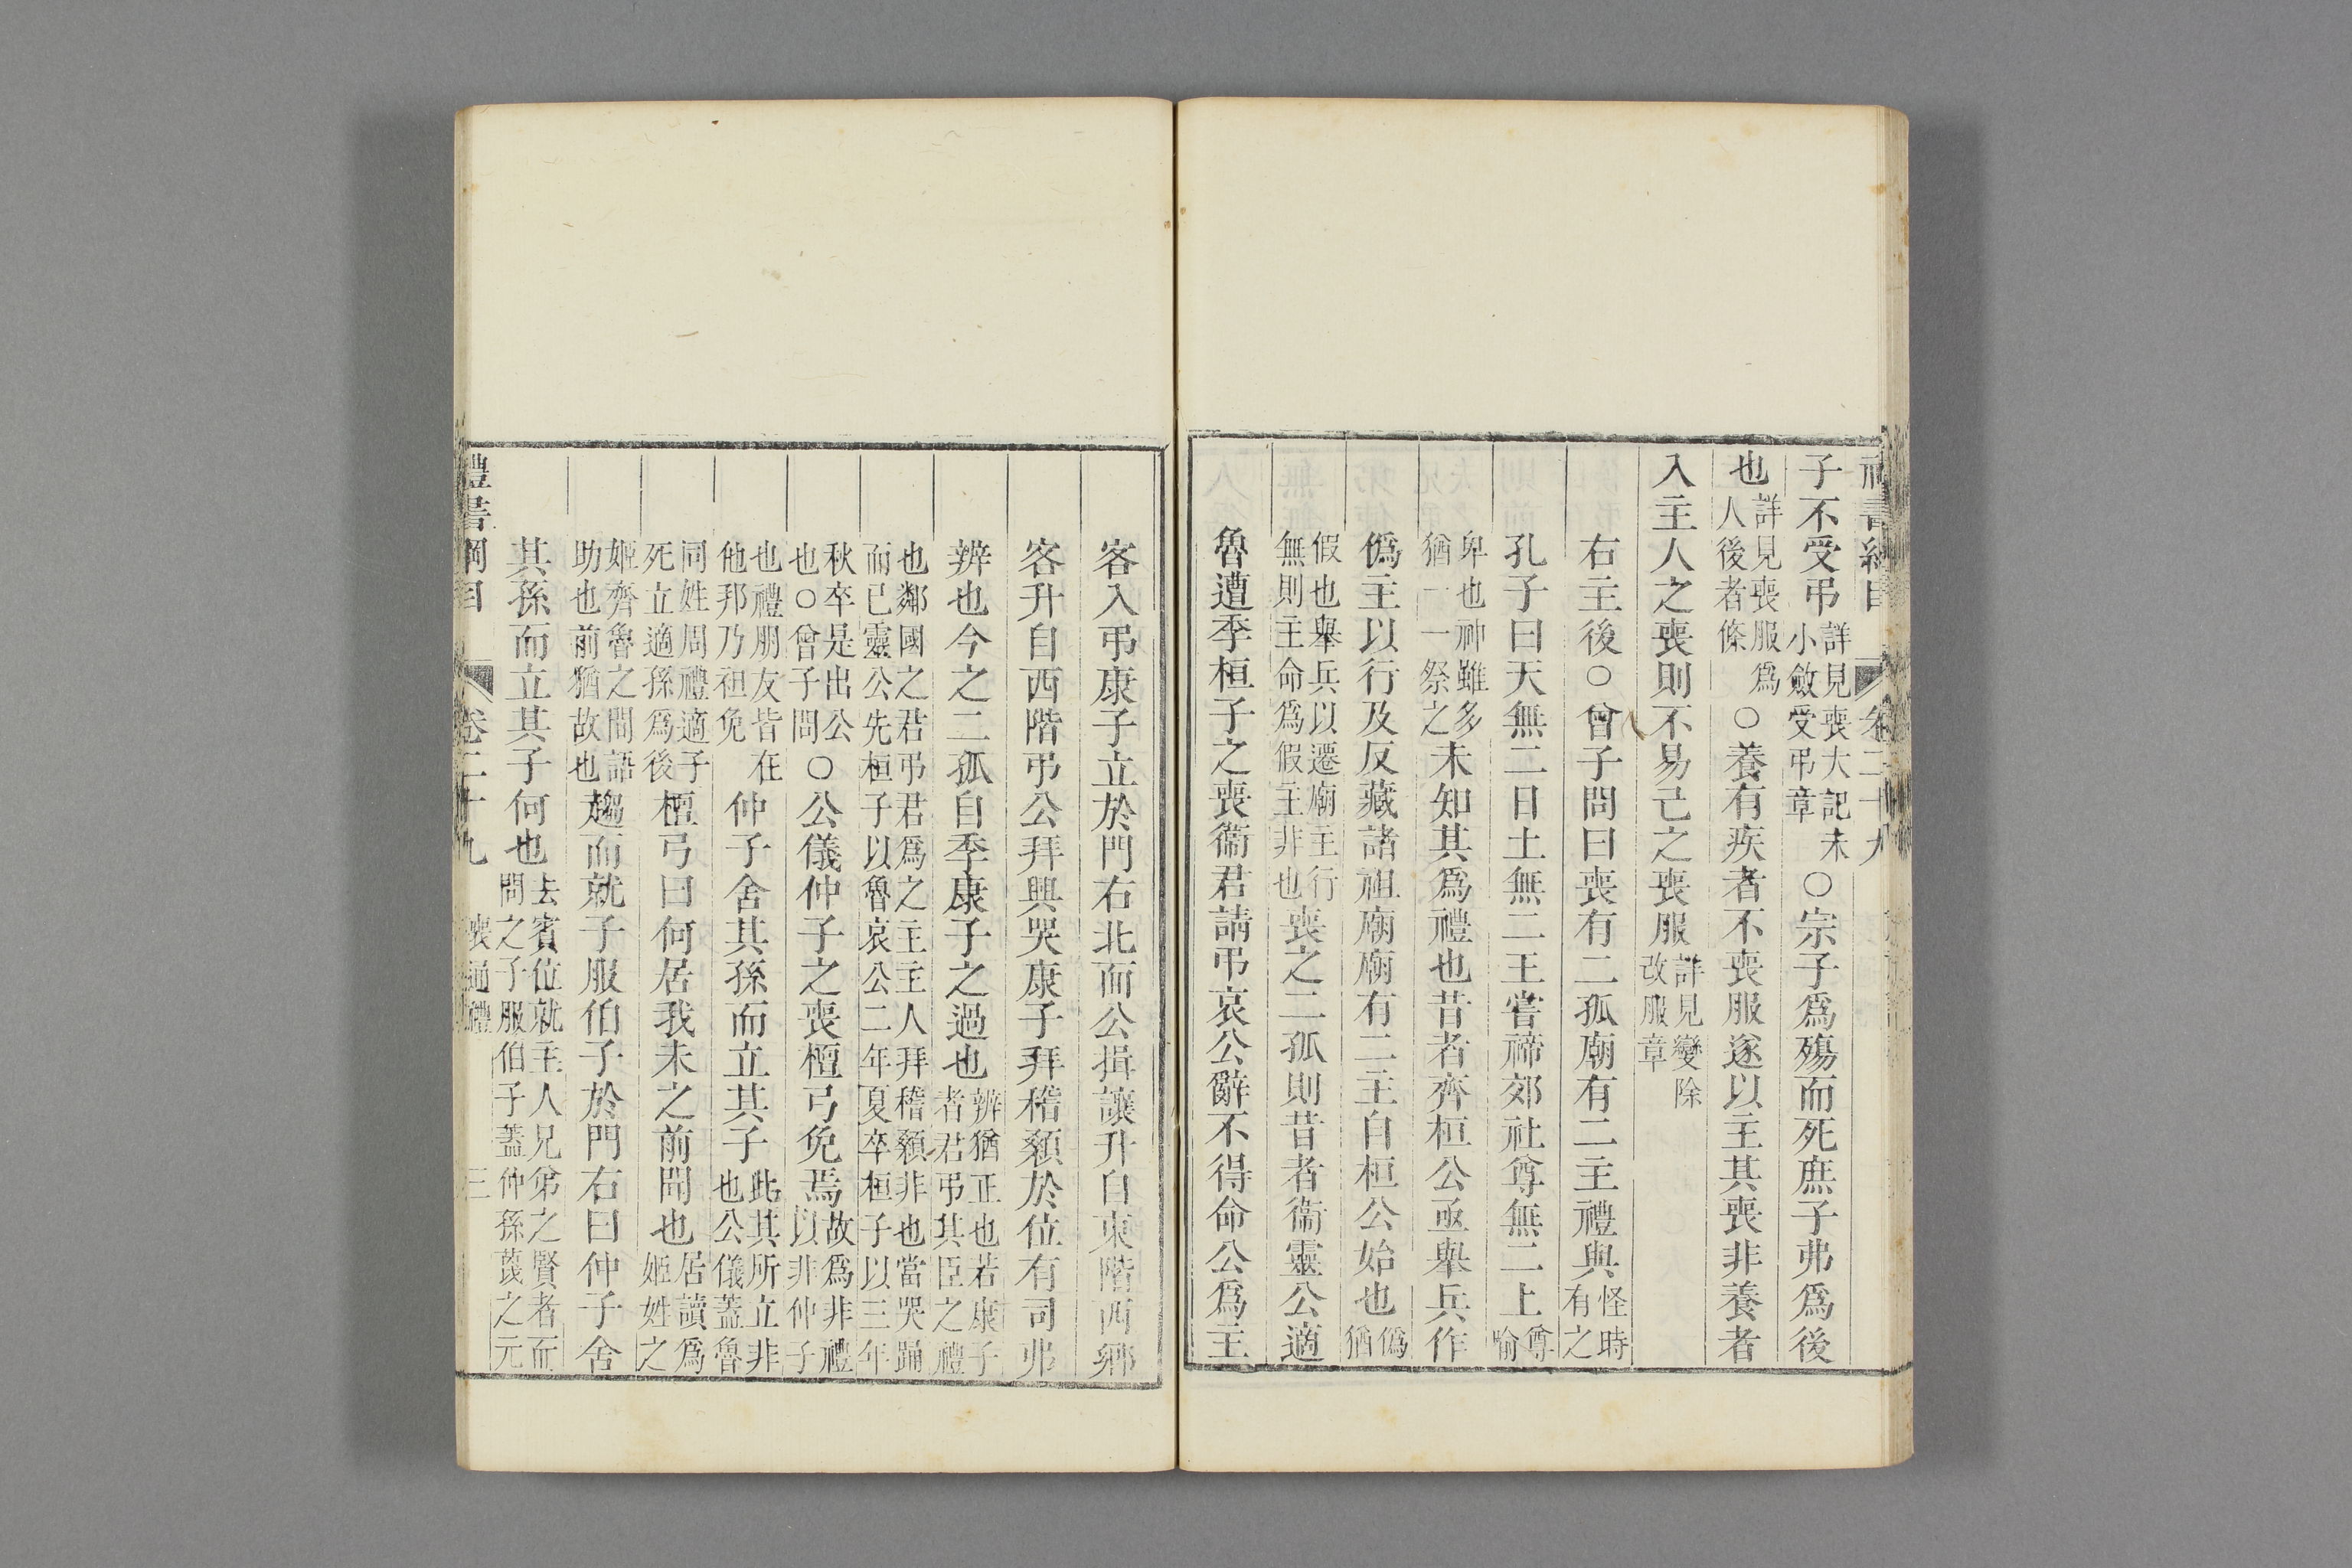 子不受弔詳見喪大記未小斂受弔章○宗子爲殤而死庶子弗爲後
也詳見喪服爲人後者條○養有疾者不喪服遂以主其喪非養者
入主人之喪則不易己之喪服詳見變除改服章
右主後○曾子問曰喪有二孤廟有二主禮與怪時有之
孔子曰天無二日土無二王嘗禘郊社尊無二上尊喻
卑也神雖多猶一一祭之未知其爲禮也昔者齊桓公亟舉兵作
僞主以行及反藏諸祖廟廟有二主自桓公始也僞猶
假也舉兵以遷廟主行無則主命爲假主非也喪之二孤則昔者衞靈公適
魯遭季桓子之喪衞君請弔哀公辭不得命公爲主
客入弔康子立於門右北面公揖讓升自東階西鄉
客升自西階弔公拜興哭康子拜稽顙於位有司弗
辨也今之二孤自季康子之過也辨猶正也若康子者君弔其臣之禮
也鄰國之君弔君爲之主主人拜稽顙非也當哭踊而已靈公先桓子以魯哀公二年夏卒桓子以三年
秋卒是出公也○曾子問○公儀仲子之喪檀弓免焉故爲非禮以非仲子
也禮朋友皆在他邦乃袒免仲子舍其孫而立其子此其所立非也公儀蓋魯
同姓周禮適子死立適孫爲後檀弓曰何居我未之前聞也居讀爲姬姓之
姬齊魯之間語助也前猶故也趨而就子服伯子於門右曰仲子舍
其孫而立其子何也去賓位就主人兄弟之賢者而問之子服伯子蓋仲孫蔑之元
禮書綱目 卷二十九 喪通禮 三